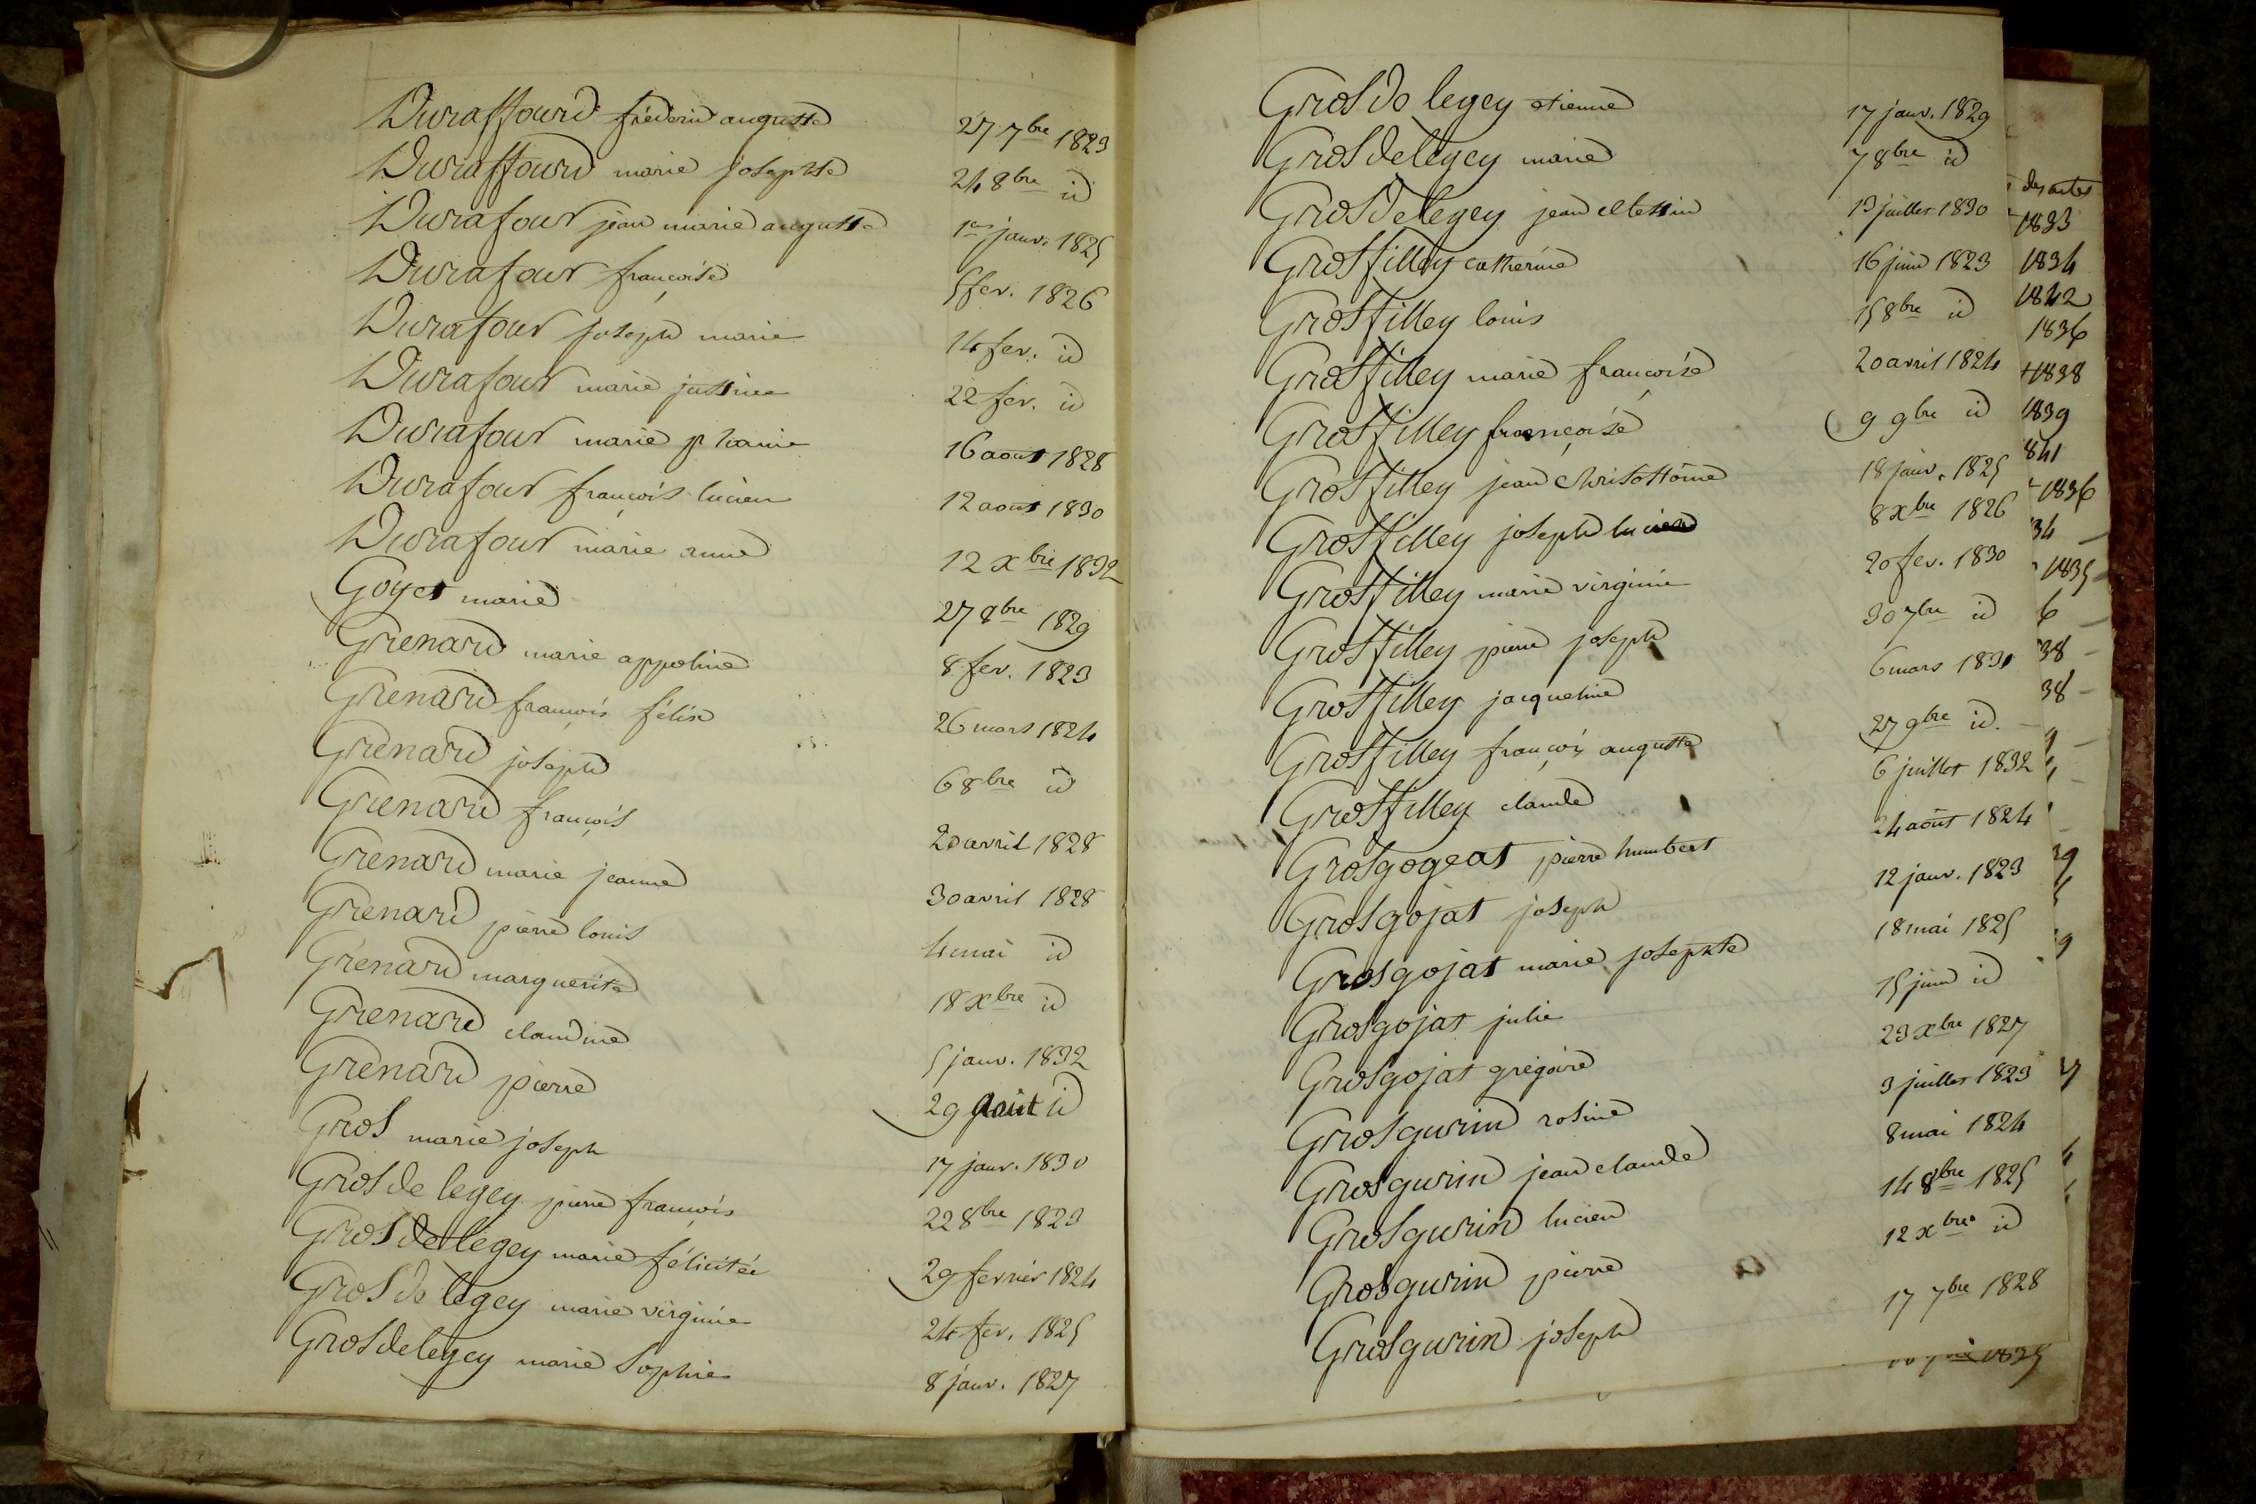 Duraffourd frédéric auguste 27 7bre 1823
Duraffourd marie josephte 24 8bre id
Durafour jean marie auguste 1er janv. 1825
Durafour françoise 5 fev. 1826
Durafour joseph marie 14 fev. id
Durafour marie justine 22 fev. id
Durafour marie phanie 16 aout 1828
Durafour françois lucien 12 aout 1830
Durafour marie anne 12 xbre 1832
Goyet marie 27 8bre 1829
Grenard marie appoline 8 fev. 1823
Grenard françois félix 26 mars 1824
Grenard joseph 6 8bre id
Grenard françois 20 avril 1828
Grenard marie jeanne 30 avril 1828
Grenard pierre louis 4 mai id
Grenard marguerite 18 xbre id
Grenard claudine 5 janv. 1832
Grenard pierre 29 aout id
Gros marie joseph 17 janv. 1830
Gros de legey pierre françois 22 8bre 1823
Gros de legey marie félicitée 29 fevrier 1824
Gros de legey marie virginie 24 fev. 1825
Grosdelegey marie Sophie 8 janv. 1827
Gros de legey etienne 17 janv. 1829
Grosdelegey marie 7 8bre id
Grosdelegey jean 13 juillet 1830
Grosfilley catherine 16 juin 1823
Grosfilley louis 15 8bre id
Grosfilley marie françoise 20 avril 1824
Grosfilley françoise 9 9bre id
Grosfilley jean Chrisostôme 18 janv. 1825
Grosfilley joseph lucien 8 xbre 1826
Grosfilley marie virginie 20 fev. 1830
Grosfilley pierre joseph 30 7bre id
Grosfilley jacqueline 6 mars 1831
Grosfilley françois auguste 27 9bre id.
Grosfilley claude 6 juillet 1832
Grosgogeat pierre humbert 24 août 1824
Grosgojat joseph 12 janv. 1823
Grosgojat marie josephte 18 mai 1825
Grosgojat julie 15 juin id
Grosgojat grégoire 23 xbre 1827
Grosgurin rosine 3 juillet 1823
Grosgurin jean claude 8 mai 1824
Grosgurin lucien 14 8bre 1825
Grosgurin pierre 12 xbre id
Grosgurin joseph 17 7bre 1828
des actes
1833
1834
1842
1836
1838
1839
841
1836
34
1835
6
38
38
1835